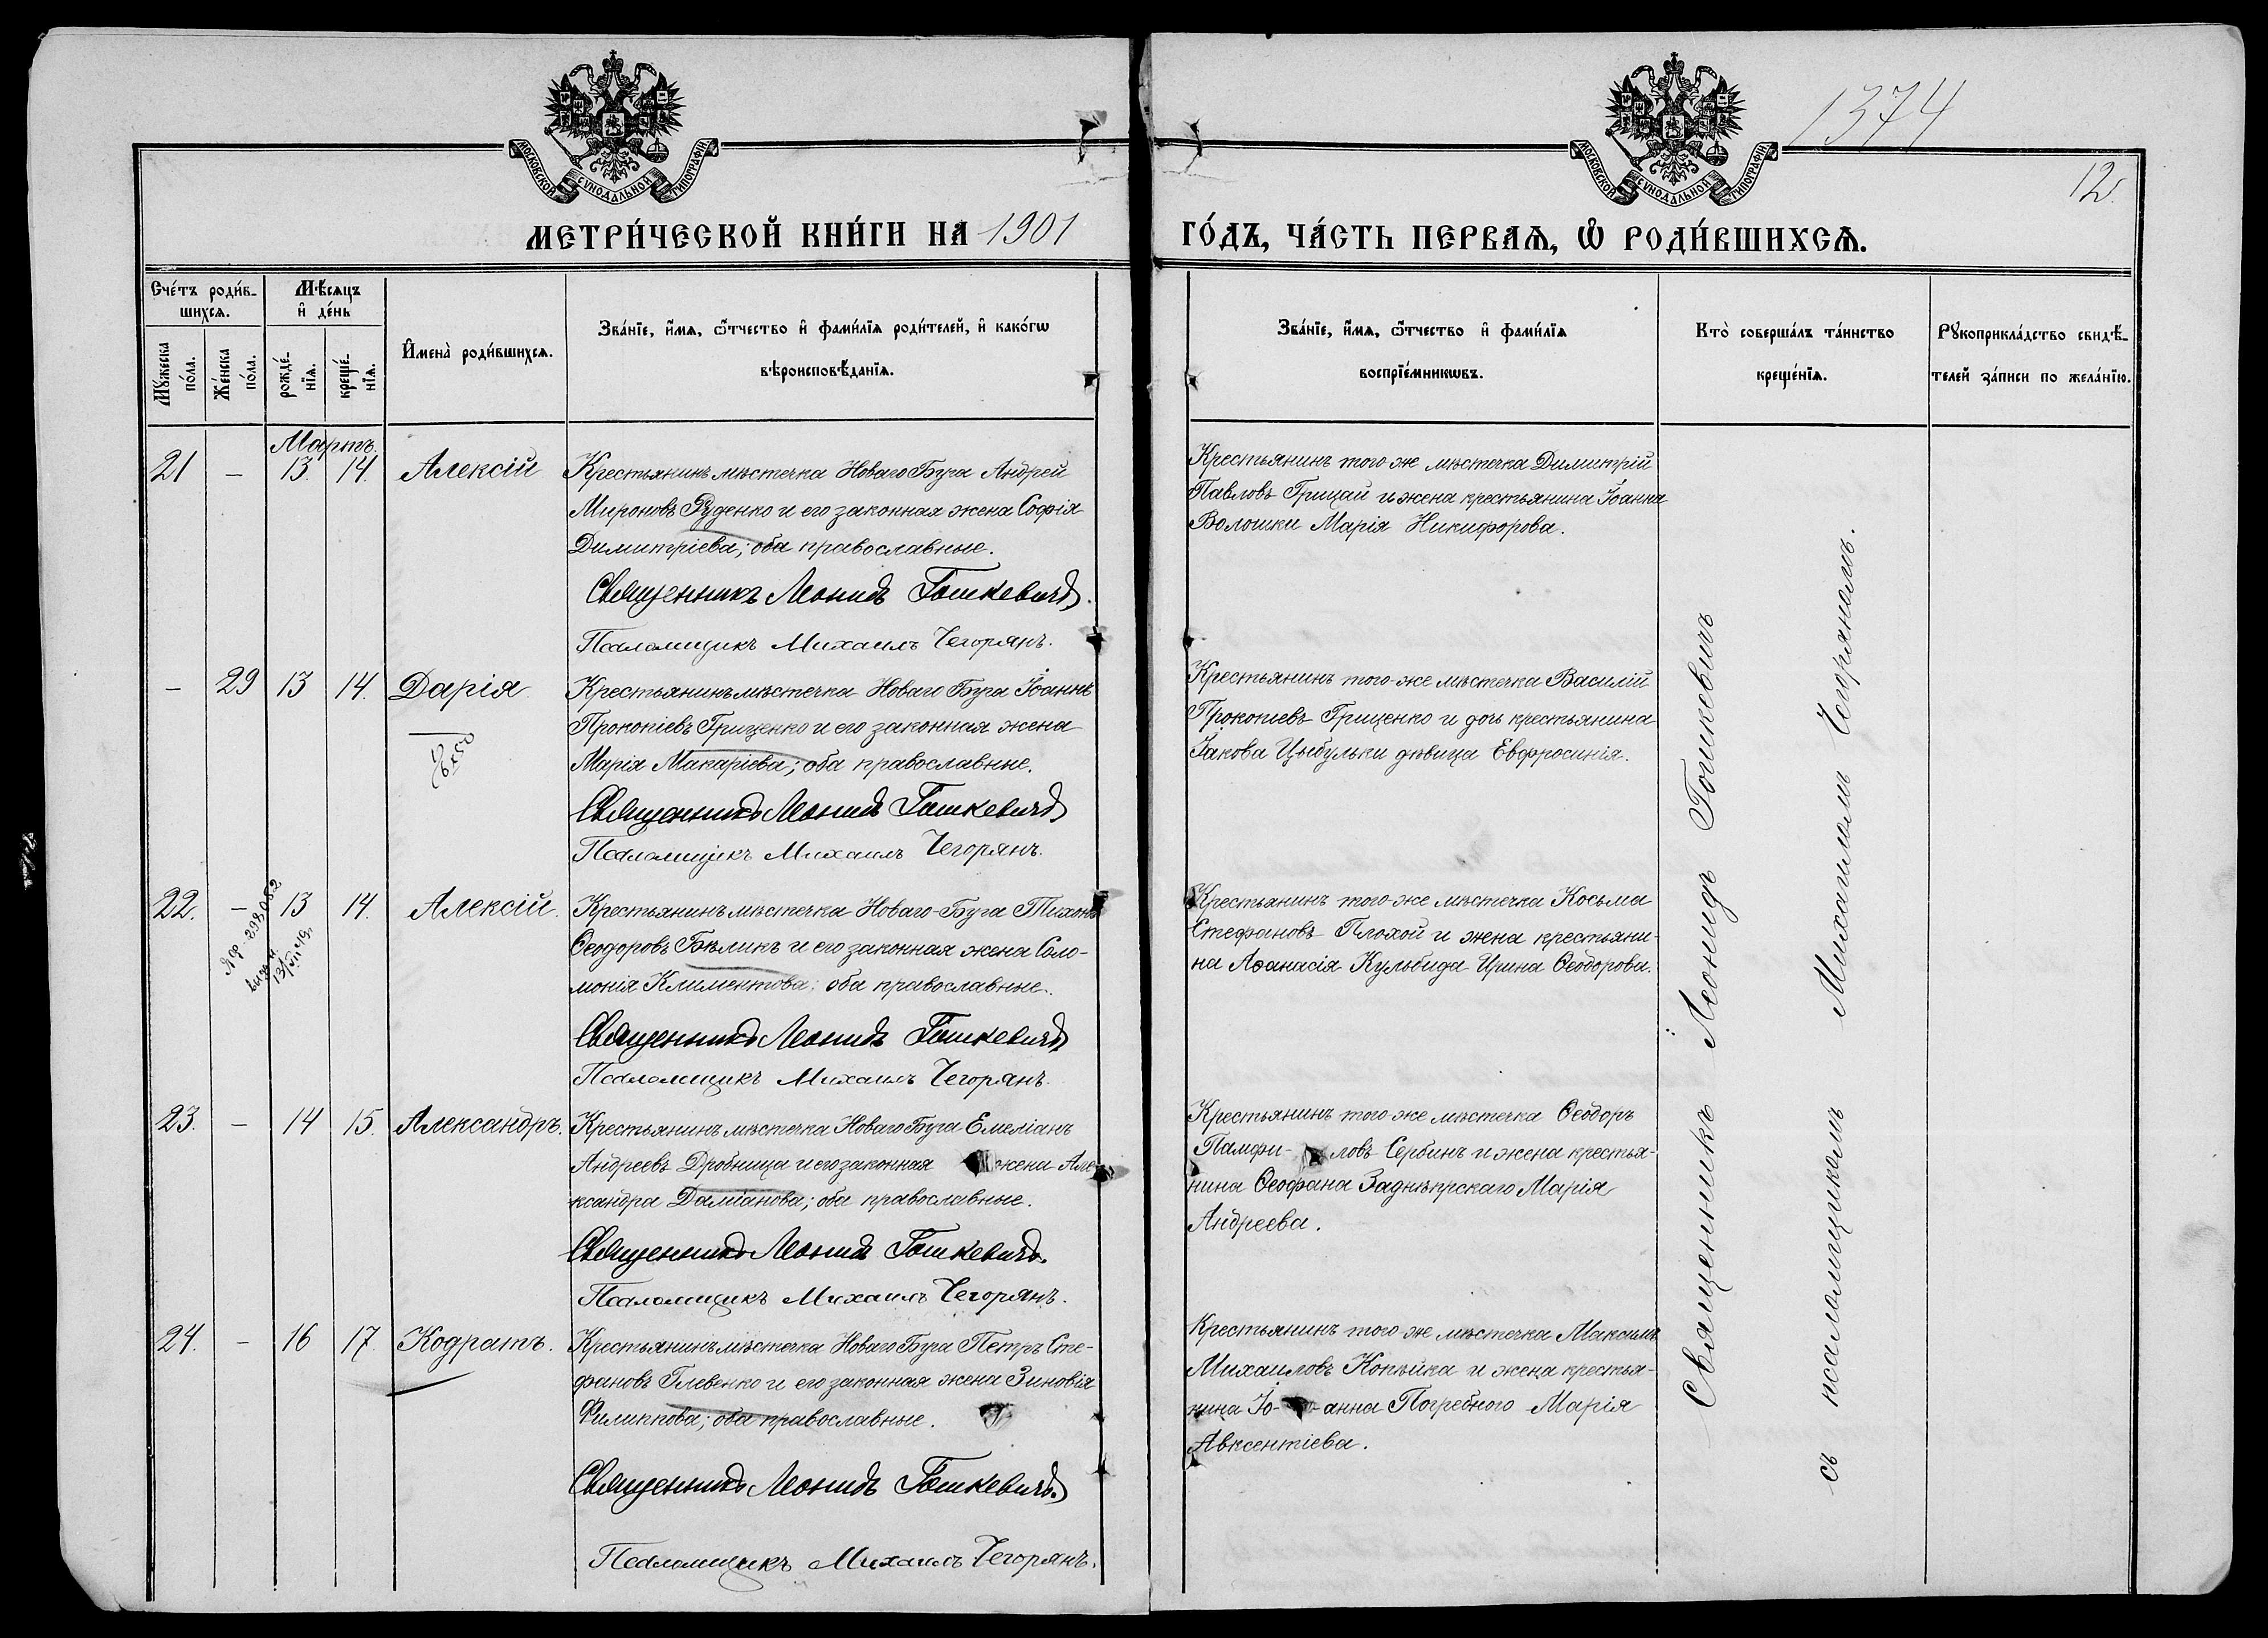 1374
12.
МОСКОВСКОЙ СѴНОДАЛЬНОЙ ТИПОГРАФІИ
МОСКОВСКОЙ СѴНОДАЛЬНОЙ ТИПОГРАФІИ
МЕТРИ́ЧЕСКОЙ КНИ́ГИ НА 1901 ГО́ДЪ, ЧА́СТЬ ПЕРВАѦ, Ѡ҆ РОДИ́ВШИХСѦ.
Сче́тъ роди́в-
шихсѧ.
Мѣ́сѧцъ
и҆ де́нь
Мꙋ́жеска
по́ла.
Же́нска
по́ла.
рожде́-
нїѧ.
креще́-
нїѧ.
И҆мена̀ роди́вшихсѧ.
Зва́нїе, и҆́мѧ, ѻ҆́тчество и҆ фами́лїѧ роди́телей, и҆ како́гѡ
вѣроисповѣ́данїѧ.
Зва́нїе, и҆́мѧ, ѻ҆́тчество и҆ фами́лїѧ
воспрїе́мникѡвъ.
Кто̀ соверша́лъ та́инство
креще́нїѧ.
Рꙋкоприкла́дство свидѣ́-
телей за́писи по жела́нїю.
Мартъ.
21 – 13. 14. Алексій
Крестьянинъ мѣстечка Новаго Буга Андрей
Мироновъ Руденко и его законная жена Софія
Димитріева; оба православные.
Священникъ Леонидъ Гошкевичъ.
Псаломщикъ Михаилъ Чегорянъ.
Крестьянинъ того-же мѣстечка Димитрій
Павловъ Грицай и жена крестьянина Іоанна
Волошки Марія Никифорова.
– 29 13 14. Дарія
Крестьянинъ мѣстечка Новаго Буга Іоаннъ
Прокопіевъ Гриценко и его законная жена
Марія Макаріева; оба православные.
Священникъ Леонидъ Гошкевичъ
Псаломщикъ Михаилъ Чегорянъ.
Крестьянинъ того-же мѣстечка Василій
Прокопіевъ Гриценко и дочь крестьянина
Іакова Цыбульки дѣвица Евфросинія.
22. – 13 14. Алексій.
298052
Крестьянинъ мѣстечка Новаго-Буга Тихонъ
Ѳеодоровъ Бѣликъ и его законная жена Соло-
монія Климентова; оба православные.
Священникъ Леонидъ Гошкевичъ
Псаломщикъ Михаилъ Чегорянъ.
Крестьянинъ того-же мѣстечка Косьма
Стефановъ Плохой и жена крестьяни-
на Аѳанасія Кульбида Ирина Ѳеодорова.
23. – 14 15. Александръ.
Крестьянинъ мѣстечка Новаго Буга Емеліанъ
Андреевъ Дробница и его законная жена Але-
ксандра Даміанова; оба православные.
Священникъ Леонидъ Гошкевичъ.
Псаломщикъ Михаилъ Чегорянъ.
Крестьянинъ того-же мѣстечка Ѳеодоръ
Памфи- ловъ Сербинъ и жена крестья-
нина Ѳеофана Заднѣпрскаго Марія
Андреева.
24. – 16 17 Кодратъ.
Крестьянинъ мѣстечка Новаго Буга Петръ Сте-
фановъ Глевенко и его законная жена Зиновія
Филиппова; оба православные.
Священникъ Леонидъ Гошкевичъ.
Псаломщикъ Михаилъ Чегорянъ.
Крестьянинъ того-же мѣстечка Максимъ
Михаиловъ Копѣйка и жена крестья-
нина Іо- анна Погребного Марія
Авксентіева.
Священникъ Леонидъ Гошкевичъ
съ псаломщикомъ Михаиломъ Чегоряномъ.